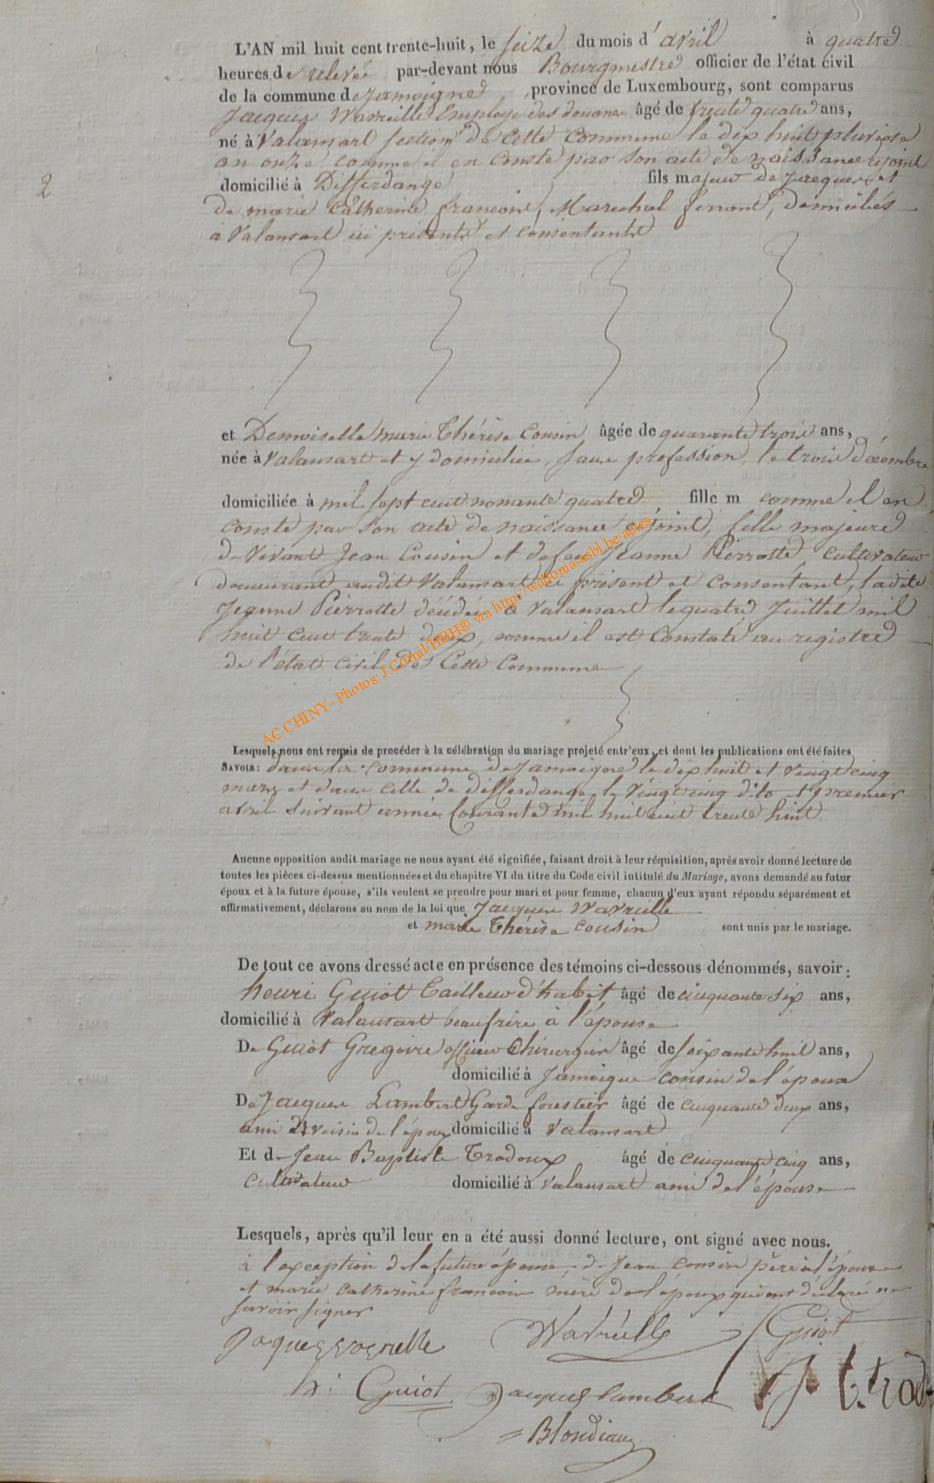 2
L'AN mil huit cent trente-huit, le seize du mois d'avril à quatre
heures de relevée par-devant nous Bourgmestre officier de l'état civil
de la commune de Jamoigne, province de Luxembourg, sont comparus
Jacques Wavreille Employé des douane âgé de trente quatre ans,
né à Valansart section de cette Commune le dix huit pluviose
an onze comme il en Conste par son acte de naissance cijoint
domicilié à Differdange fils majeur de Jacques et
de marie Catherine francois, Marechal ferrant, domiciliés
a Valansart ici présents et consentants
et Demoiselle marie Thérèse Cousin âgée de quarante trois ans,
née à Valansart et y domiciliée, sans profession, le trois décembre
domiciliée à mil sept cent nonante quatre fille m comme il en
conste par son acte de naissance cijoint, fille majeure
de vivant Jean Cousin et de feu Jeanne Pierrotte, cultivateur
demeurant audit Valansart ci présent et consentant, ladite
Jeanne Pierrotte décédée à Valansart le quatre Juillet mil
huit cent trente deux, comme il est Constaté au registre
de l'état civil de Cette Commune
AC CHINY - Photos: J.Cornil/HBH® via http://wallonia-asbl.be/actes
Lesquels nous ont requis de procéder à la célébration du mariage projeté entr'eux, et dont les publications ont été faites
SAVOIR: dans la commune de Jamoigne le dix huit et vingt cinq
mars et dans celle de differdange le vingt cinq dito et premier
avril suivant année Courante mil huit cent trente huit.
Aucune opposition audit mariage ne nous ayant été signifiée, faisant droit à leur réquisition, après avoir donné lecture de
toutes les pièces ci-dessus mentionnées et du chapitre VI du titre du Code civil intitulé du Mariage, avons demandé au futur
époux et à la future épouse, s'ils veulent se prendre pour mari et pour femme, chacun d'eux ayant répondu séparément et
affirmativement, déclarons au nom de la loi que Jacques Wavreille
et marie Thérèse Cousin sont unis par le mariage.
De tout ce avons dressé acte en présence des témoins ci-dessous dénommés, savoir:
henri Guiot Tailleur d'habit âgé de cinquante six ans,
domicilié à Valansart beau frère à l'épouse
De Guiot Gregoire officier Chirurgien âgé de soixante huit ans,
domicilié à Jamoigne cousin de l'époux
De Jacques Lambert Garde forestier âgé de cinquante deux ans,
ami et voisin de l'époux domicilié à Valansart
Et de Jean Baptiste Trodoux âgé de cinquante cinq ans,
cultivateur domicilié à Valansart ami de l'épouse
Lesquels, après qu'il leur en a été aussi donné lecture, ont signé avec nous.
à l'exception de la future épouse, de Jean cousin père à l'épouse
et marie catherine francois mère de l'époux qui ont déclaré ne
savoir signer
Jaques Wavreille Wavreille Guiot
h: Guiot Jacques lambert
Blondiau